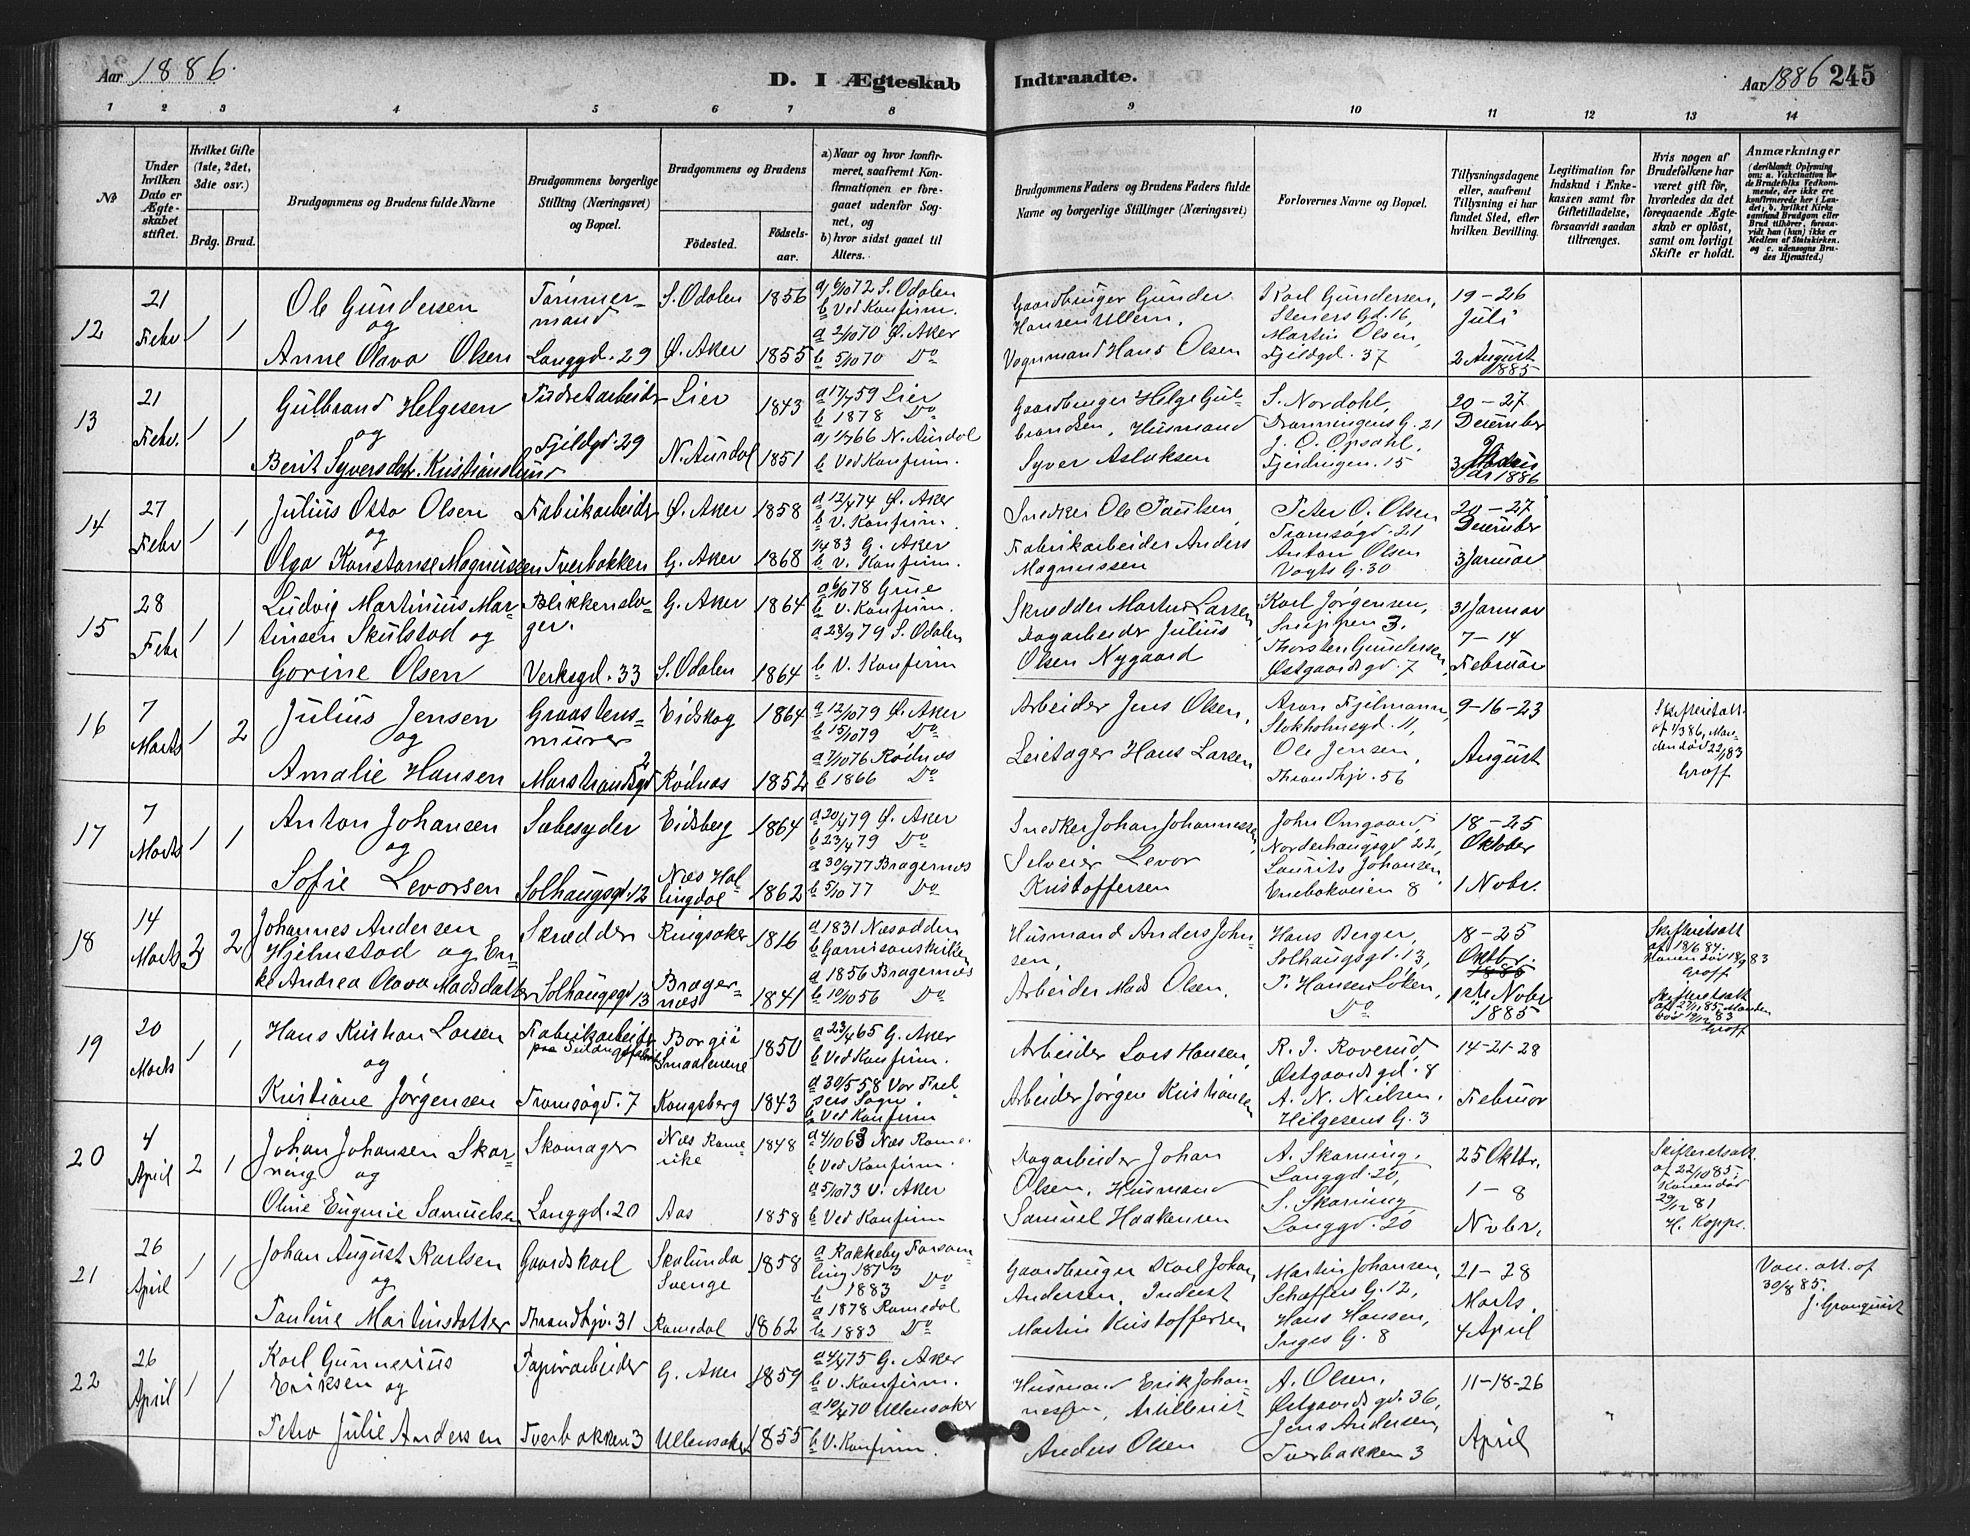 Aar 1886.
D. I Ægteskab
Indtraadte.
Aar 1886 245
1 2 3 4 5 6 7 8 9 10 11 12 13 14
No
Under hvilken Dato er Ægteskabet stiftet.
Hvilket Gifte (1ste, 2det, 3die osv.)
Brdg. Brud.
Brudgommens og Brudens fulde Navne
Brudgommens borgerlige Stilling (Næringsvei) og Bopæl.
Brudgommens og Brudens
Fødested.
Fødselsaar.
a) Naar og hvor konfirmeret, saafremt Konfirmationen er foregaaet udenfor Sognet, og
b) hvor sidst gaaet til Alters.
Brudgommens Faders og Brudens Faders fulde Navne og borgerlige Stillinger (Næringsvei)
Forlovernes Navne og Bopæl.
Tillysningsdagene eller, saafremt Tillysning ei har fundet Sted, efter hvilken Bevilling.
Legitimation for Indskud i Enkekassen samt for Giftetilladelse, forsaavidt saadan tiltrænges.
Hvis nogen af Brudefolkene har været gift før, hvorledes da det foregaaende Ægteskab er opløst, samt om lovligt Skifte er holdt.
Anmærkninger (deriblandt Oplysning om: a. Vakcination for de Brudefolks Vedkommende, der ikke ere konfirmerede her i Landet; b. hvilket Kirkesamfund Brudgom eller Brud tilhører, forsaavidt han (hun) ikke er Medlem af Statskirken. og c. udensogns Brudes Hjemsted.)
12
21 Febr
1 1
Ole Gundersen
og
Anne Olava Olsen
Tømmermand
Langgd. 29
S. Odalen 1856
Ø. Aker 1855
a 6/10 72 S. Odalen
b Ved Konfirm.
a 2/10 70 Ø. Aker
b 5/10 70 Do
Gaardbruger Gunder
Hansen Ullern,
Vognmand Hans Olsen
Karl Gundersen,
Steners Gd. 16,
Martin Olsen,
Fjeldgd. 37
19-26
Juli
2 August
1885
13
21 Febr.
1 1
Gulbrand Helgesen
og
Berit Syversdatr. Kristianslund
Fjeldgd 29
Lier 1843
N. Aurdal 1851
b 1878 Do
b Ved Konfirm.
Gaardbruger Helge Gulbrandsen, Husmand
Syver Aslaksen
S. Nordahl,
Dronningens G. 21
J. O. Opsahl,
Fjerdingen. 15
20-27
December
1886
14
27 Febr
1 1
Julius Otto Olsen
og
Olga Konstanse Magnussen
Fabrikarbeider
Tverbakken
Ø. Aker 1858
G. Aker 1868
a 12/4 74 Ø. Aker
b V. Konfirm.
83 G. Aker
b V. Konfirm.
Snedker Ole Paulsen,
Fabrikarbeider Anders
Magnussen
Peter O. Olsen
Tromsøgd. 21
Anton Olsen
Vogts G. 30
20-27
December
3 Januar
15
28 Febr
1 1
Ludvig Martinius Martinsen Skulstad og
Gorine Olsen
Blikkenslager.
Verksgd. 33
G. Aker 1864
S. Odalen 1864
a 6/10 78 Grue
b V. Konfirm.
a 28/9 79 S. Odalen
b V. Konfirm
Skrædder Martin Larsen
Dagarbeider Julius
Olsen Nygaard
Karl Jørgensen,
Snippen 3.
Thorsten Gundersen,
Østgaardsgd. 7
31 Januar
7-14
Februar
16
7 Marts
1 2
Julius Jensen
og
Amalie Hansen
Graastensmurer
Marstrandsgd 2
Eidskog 1864
Rødnæs 1852
a 12/10 79 Ø. Aker
b 15/10 79 Do
a 7/10 76 Rødnæs
b 1866 Do
Arbeider Jens Olsen,
Leietager Hans Larsen
Aron Fjelmann,
Stokholmsgd. 11,
Ole Jensen,
Thrandhjv. 56
9-16-23
August
Skifteretsatt.
af 1/3 86, Manden død 22/1 83
Graff
17
7 Marts
1 1
Anton Johansen
og
Sofie Levorsen
Sæbesyder
Solhaugsgd. 12
Eidsberg 1864
Næs Hallingdal 1862
a 20/4 79 Ø. Aker
b 23/4 79 Do
a 30/9 77 Bragernæs
b 5/10 77 Do
Snedker Johan Johannessen,
Selveier Levor
Kristoffersen
John Omgaard,
Norderhaugsgd 22,
Laurits Johansen,
Enebakveien 8
18-25
Oktober
1 Novbr.
18
14 Marts
3 2
Johannes Andersen
Hjelmstad og Enke Andrea Olava Madsdatter
Skrædder
Solhaugsgd 13
Ringsaker 1816
Bragernæs 1841
a 1831 Næsodden
b Garnisonskirken
a 1856 Bragernæs
b 10/10 56 Do
Husmand Anders Johnsen,
Arbeider Mads Olsen,
Hans Berger,
Solhaugsgd. 13,
P. Hansen Løken,
Do
18-25
Oktbr.
1885
1ste Novbr
1885
Skifteretsatt
af 18/6 84.
Graff
Skifteretsatt
Graff
19
20 Marts
1 1
Hans Kristian Larsen
og
Kristiane Jørgensen
Fabrikarbeider
Tromsøgd. 7
Borge i Smaalenene 1850
Kongsberg 1843
a 23/4 65 G. Aker
b Ved Konfirm.
a 30/5 58 Vor Frelsers Sogn
b Ved Konfirm
Arbeider Lars Hansen,
Arbeider Jørgen Kristiansen
R. J. Roverud,
Østgaardsgd. 8
A. N. Nielsen,
Helgesens G. 3
14-21-28
Februar
20
4 April
2 1
Johan Johansen Skarning og
Oline Eugenie Samuelsen
Skomager
Langgd. 20
Næs Romerike 1848
Aas 1858
a 4/10 63 Næs Rome.
b Ved Konfirm.
a 5/10 73 V. Aker
b Ved Konfirm
Dagarbeider Johan
Olsen, Husmand
Samuel Haakensen
A. Skarning,
Langgd. 20,
S. Skarning
Langgd. 20,
25 Oktbr.
1-8
Novbr,
Skifteretsatt.
af 22/10 85.
Konen død
29/12 81
H. Koppe.
21
26 April
1 1
Johan August Karlsen
og
Pauline Martinsdatter
Gaardskarl
Thrandhjv. 31
Skalunda Sverige 1858
Romedal 1862
a Rakkeby Forsamling 1873
b 1883 Do
a 1878 Romedal
b 1883 Do
Gaardbruger Karl Johan
Andersen, Inderst
Martin Kristoffersen
Martin Johansen,
Schæffers G. 12,
Hans Hansen,
Inges G. 8
21-28
Marts.
4 April
Vacc. att. af
30/8 85.
J. Granquist
22
26 April
1 1
Karl Gunnerius
Eriksen og
Petra Julie Andersen
Papirarbeider
Tverbakken 3
G. Aker 1859
Ullensaker 1855
a 4/4 75 G. Aker
b V. Konfirm.
a 10/4 70 Ullensaker
b V. Konfirm.
Husmand Erik Johannessen, Artillerist
Anders Olsen
A. Olsen,
Østgaardsgd. 36,
Jens Andersen,
Tverbakken 3
11-18-26
April